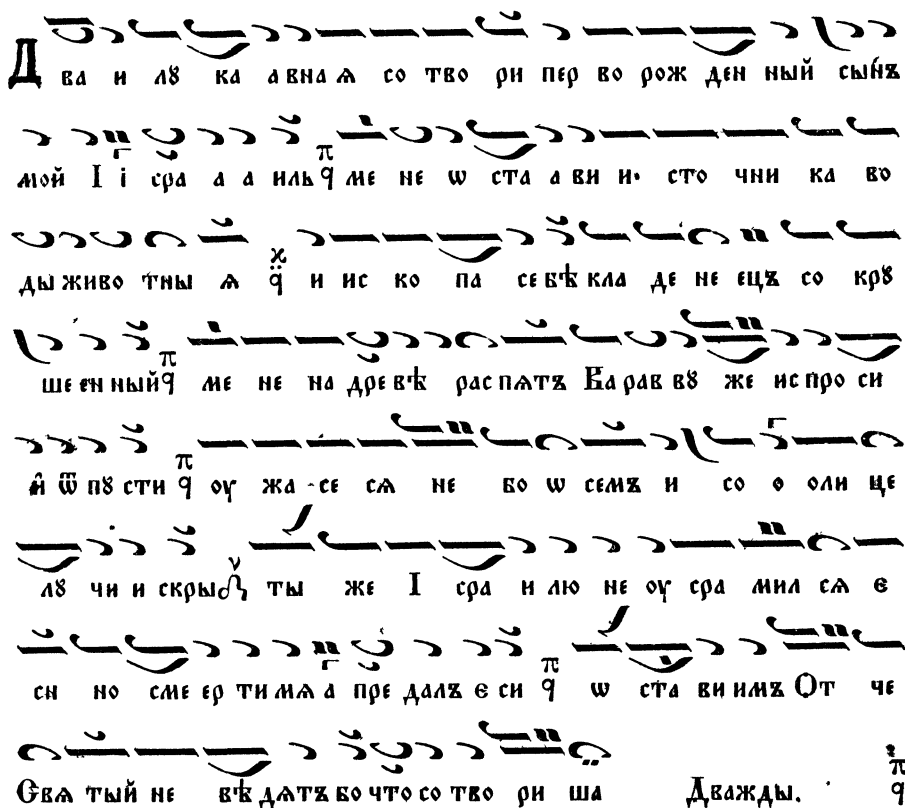 Два и лꙋ ка а вна ѧ со тво ри пер во рож ден ный сы́нъ
мой І і сра а а иль ме не ѡ ста а ви и сто чни ка во
ды живо тны ѧ и ис ко па се бѣ кла де не ецъ со крꙋ
ше ен ный ме не на дре вѣ рас пѧтъ Вара в вꙋ же ис про си
и҆ ѿ пꙋ сти оу жа се сѧ не бо ѡ семъ и со о оли це
лꙋ чи и скры ты же І сра и лю не оу сра мил сѧ є
си но сме ер ти мѧ а пре далъ є си ѡ ста ви имъ От че
Свѧ тый не вѣ дѧтъ бо что со тво ри ша Дважды.